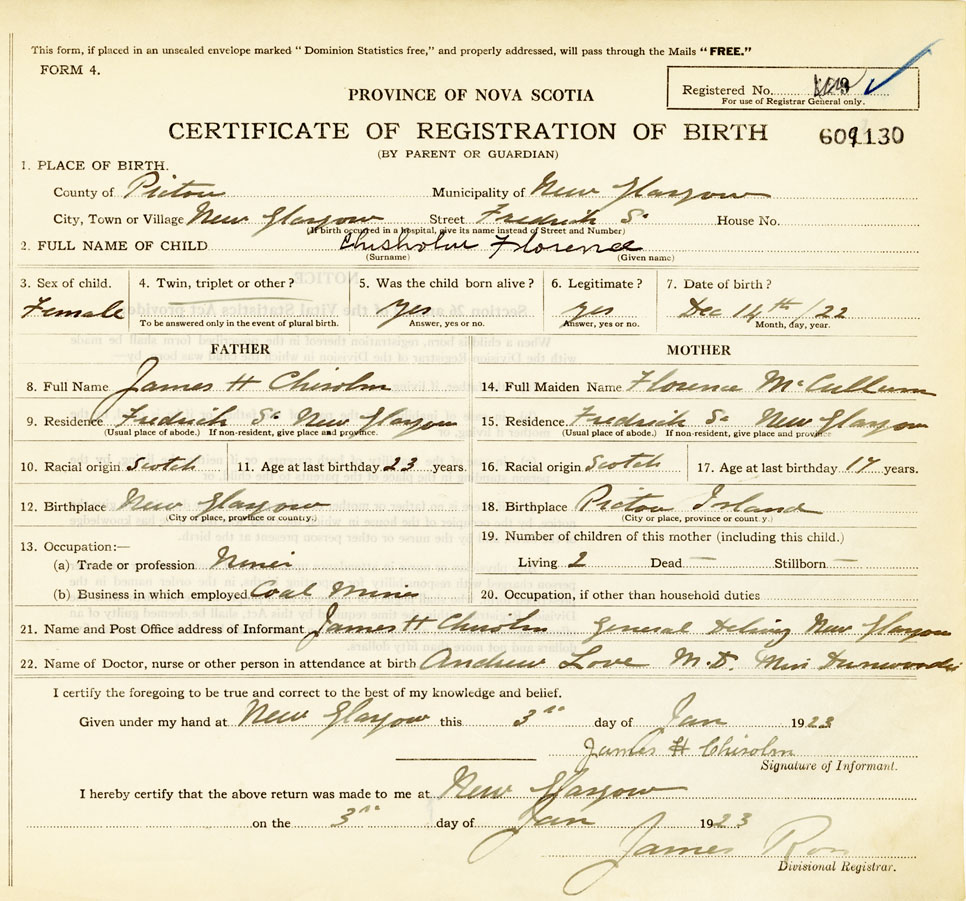 This form, if placed in an unsealed envelope marked "Dominion Statistics free," and properly addressed, will pass through the Mails "FREE."
FORM 4.
Registered No.
For use of Registrar General only.
PROVINCE OF NOVA SCOTIA
CERTIFICATE OF REGISTRATION OF BIRTH
(BY PARENT OR GUARDIAN)
1. PLACE OF BIRTH.
County of Pictou Municipality of New Glasgow
City, Town or Village New Glasgow Street Fredrick St House No.
(If birth occurred in a hospital, give its name instead of Street and Number)
2. FULL NAME OF CHILD Chisholm Florence
(Surname) (Given name)
3. Sex of child. 4. Twin, triplet or other? 5. Was the child born alive? 6. Legitimate? 7. Date of birth?
Female Yes yes Dec 14th/22
To be answered only in the event of plural birth. Answer, yes or no. Answer, yes or no. Month, day, year.
FATHER MOTHER
8. Full Name James H Chisolm 14. Full Maiden Name Florence McCullum
9. Residence Fredrick St New Glasgow 15. Residence. Fredrick St New Glasgow
(Usual place of abode.) If non-resident, give place and province. (Usual place of abode.) If non-resident, give place and province
10. Racial origin Scotch 11. Age at last birthday 23 years. 16. Racial origin Scotch 17. Age at last birthday 17 years.
12. Birthplace New Glasgow 18. Birthplace Pictou Island
(City or place, province or country.) (City or place, province or country.)
13. Occupation:— 19. Number of children of this mother (including this child.)
(a) Trade or profession Miner Living 2 Dead — Stillborn —
(b) Business in which employed Coal Mines 20. Occupation, if other than household duties
21. Name and Post Office address of Informant James H Chisolm General Delivery New Glasgow
22. Name of Doctor, nurse or other person in attendance at birth Andrew Love M.D. Miss
I certify the foregoing to be true and correct to the best of my knowledge and belief.
Given under my hand at New Glasgow this 3rd day of Jan 1923
James H Chisolm
Signature of Informant.
I hereby certify that the above return was made to me at New Glasgow
on the 3rd day of Jan 1923
James Ross
Divisional Registrar.